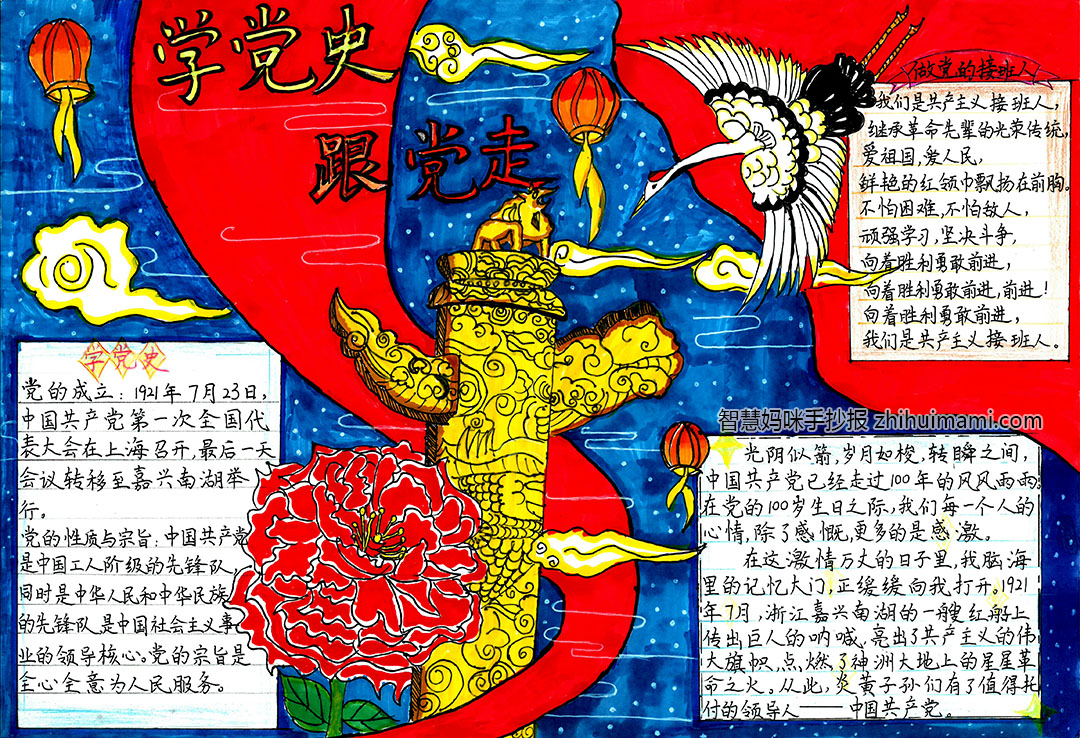 学党史
跟党走
做党的接班人
我们是共产主义接班人,
继承革命先辈的光荣传统,
爱祖国,爱人民,
鲜艳的红领巾飘扬在前胸。
不怕困难,不怕敌人,
顽强学习,坚决斗争,
向着胜利勇敢前进,
向着胜利勇敢前进,前进!
向着胜利勇敢前进,
我们是共产主义接班人。
学党史
党的成立:1921年7月23日,
中国共产党第一次全国代
表大会在上海召开,最后一天
会议转移至嘉兴南湖举
行。
党的性质与宗旨,中国共产党
是中国工人阶级的先锋队,
同时是中华人民和中华民族
的先锋队是中国社会主义事
业的领导核心。党的宗旨是
全心全意为人民服务。
智慧妈咪手抄报 zhihuimami.com
光阴似箭,岁月如梭,转瞬之间,
中国共产党已经走过100年的风风雨雨
在党的100岁生日之际,我们每一个人的
心情,除了感慨,更多的是感激。
在这激情万丈的日子里,我脑海
里的记忆大门,正缓缓向我打开。1921
年7月,浙江嘉兴南湖的一艘红船上
传出巨人的呐喊,亮出了共产主义的伟
大旗帜,点燃了神洲大地上的星星革
命之火。从此,炎黄子孙们有了值得托
付的领导人——中国共产党。